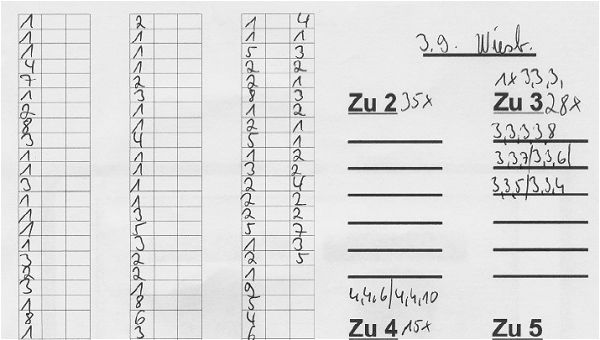 1
1
1
4
7
1
2
8
3
1
1
3
1
1
1
1
3
2
3
1
8
1
2
1
1
1
2
3
1
1
4
1
1
1
1
3
5
3
2
2
1
8
6
3
1
1
5
2
2
8
1
2
5
1
3
2
2
2
5
1
2
1
9
3
4
6
4
1
3
2
1
3
2
1
1
2
2
4
2
2
7
3
5
3.9. Wiesb.
1x 3,3,3,
Zu 2 35x
Zu 3 28x
3,3,3,3,8
3,3,7/3,3,6/
3,3,5/3,3,4
4,4,6/4,4,10
Zu 4 15x
Zu 5